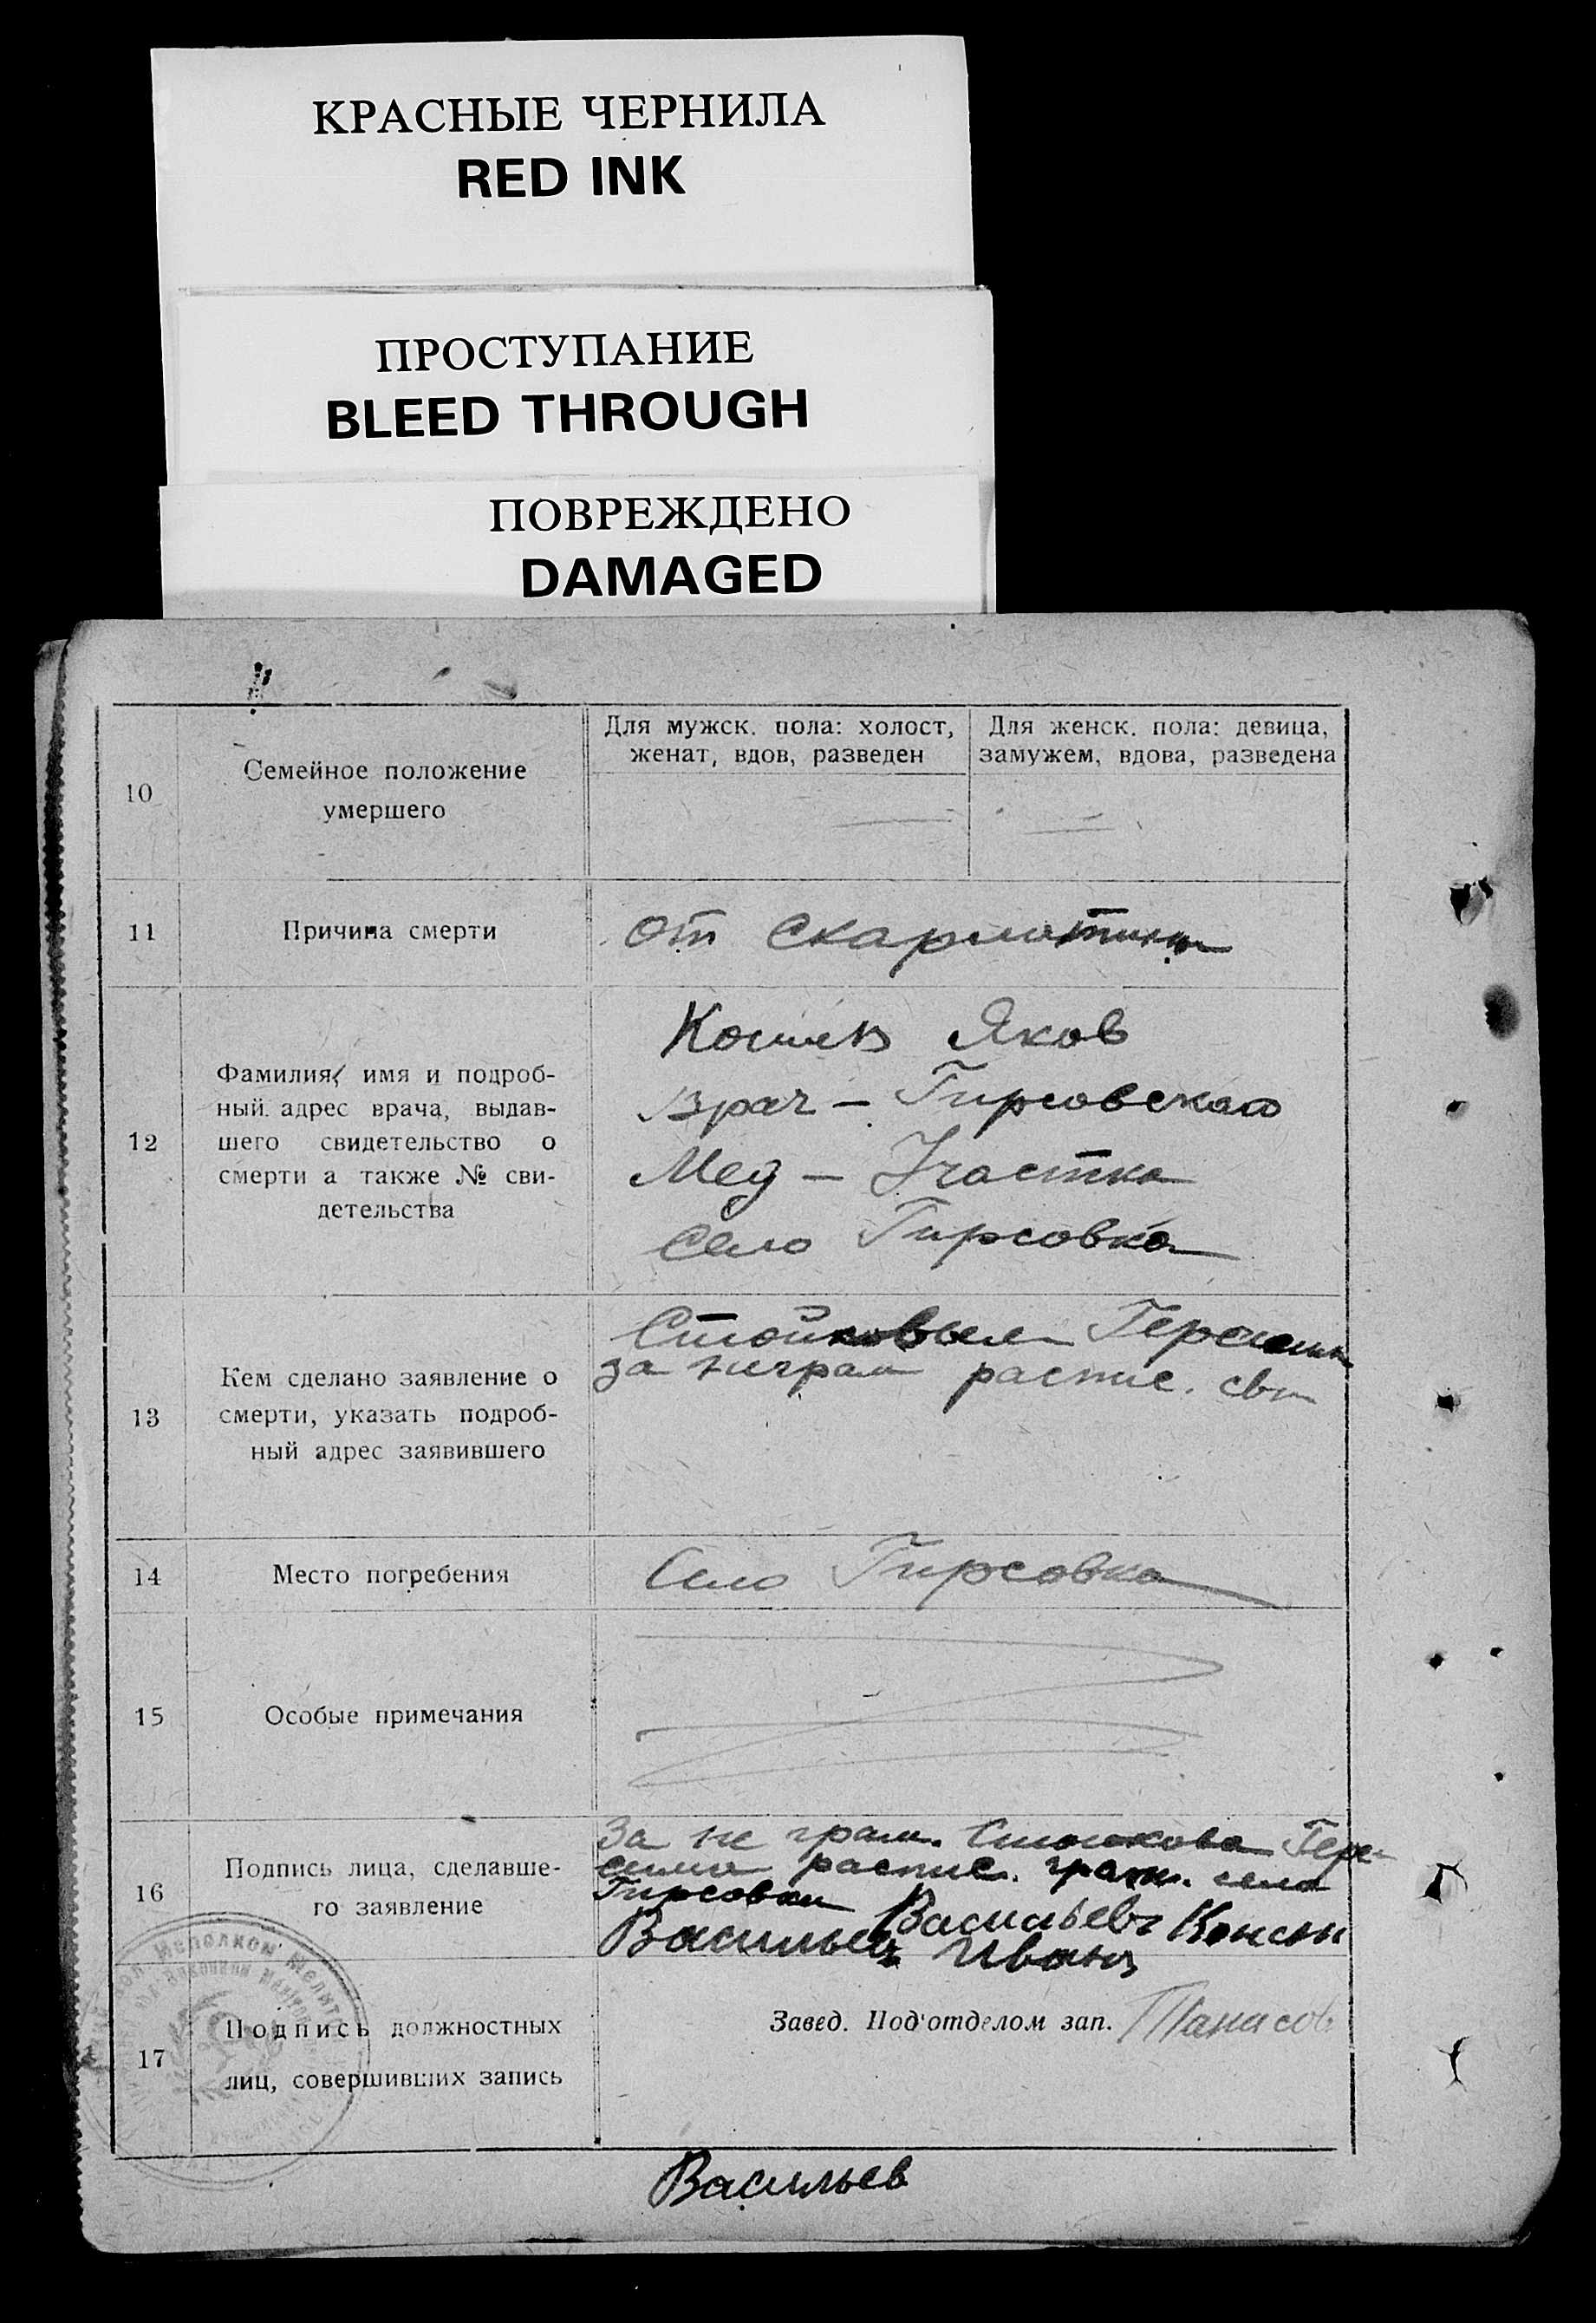 КРАСНЫЕ ЧЕРНИЛА
RED INK
ПРОСТУПАНИЕ
BLEED THROUGH
ПОВРЕЖДЕНО
DAMAGED
10
Семейное положение
умершего
Для мужск. пола: холост,
женат, вдов, разведен
Для женск. пола: девица,
замужем, вдова, разведена
11
Причина смерти
От Скарлатины
12
Фамилия, имя и подроб-
ный адрес врача, выдав-
шего свидетельство о
смерти а также № сви-
детельства
Яков
Врач – Гирсовского
Мед – Участка
Село Гирсовка
13
Кем сделано заявление о
смерти, указать подроб-
ный адрес заявившего
Стойковым
за неграм распис.
14
Место погребения
Село Гирсовка
15
Особые примечания
16
Подпись лица, сделавше-
го заявление
За не грам. Стойкова Гера-
сима распис. граж. села
Гирсовки Васильев Конст
Васильев Иван
17
Подпись должностных
лиц, совершивших запись
Завед. Под'отделом зап. Танасов
Васильев